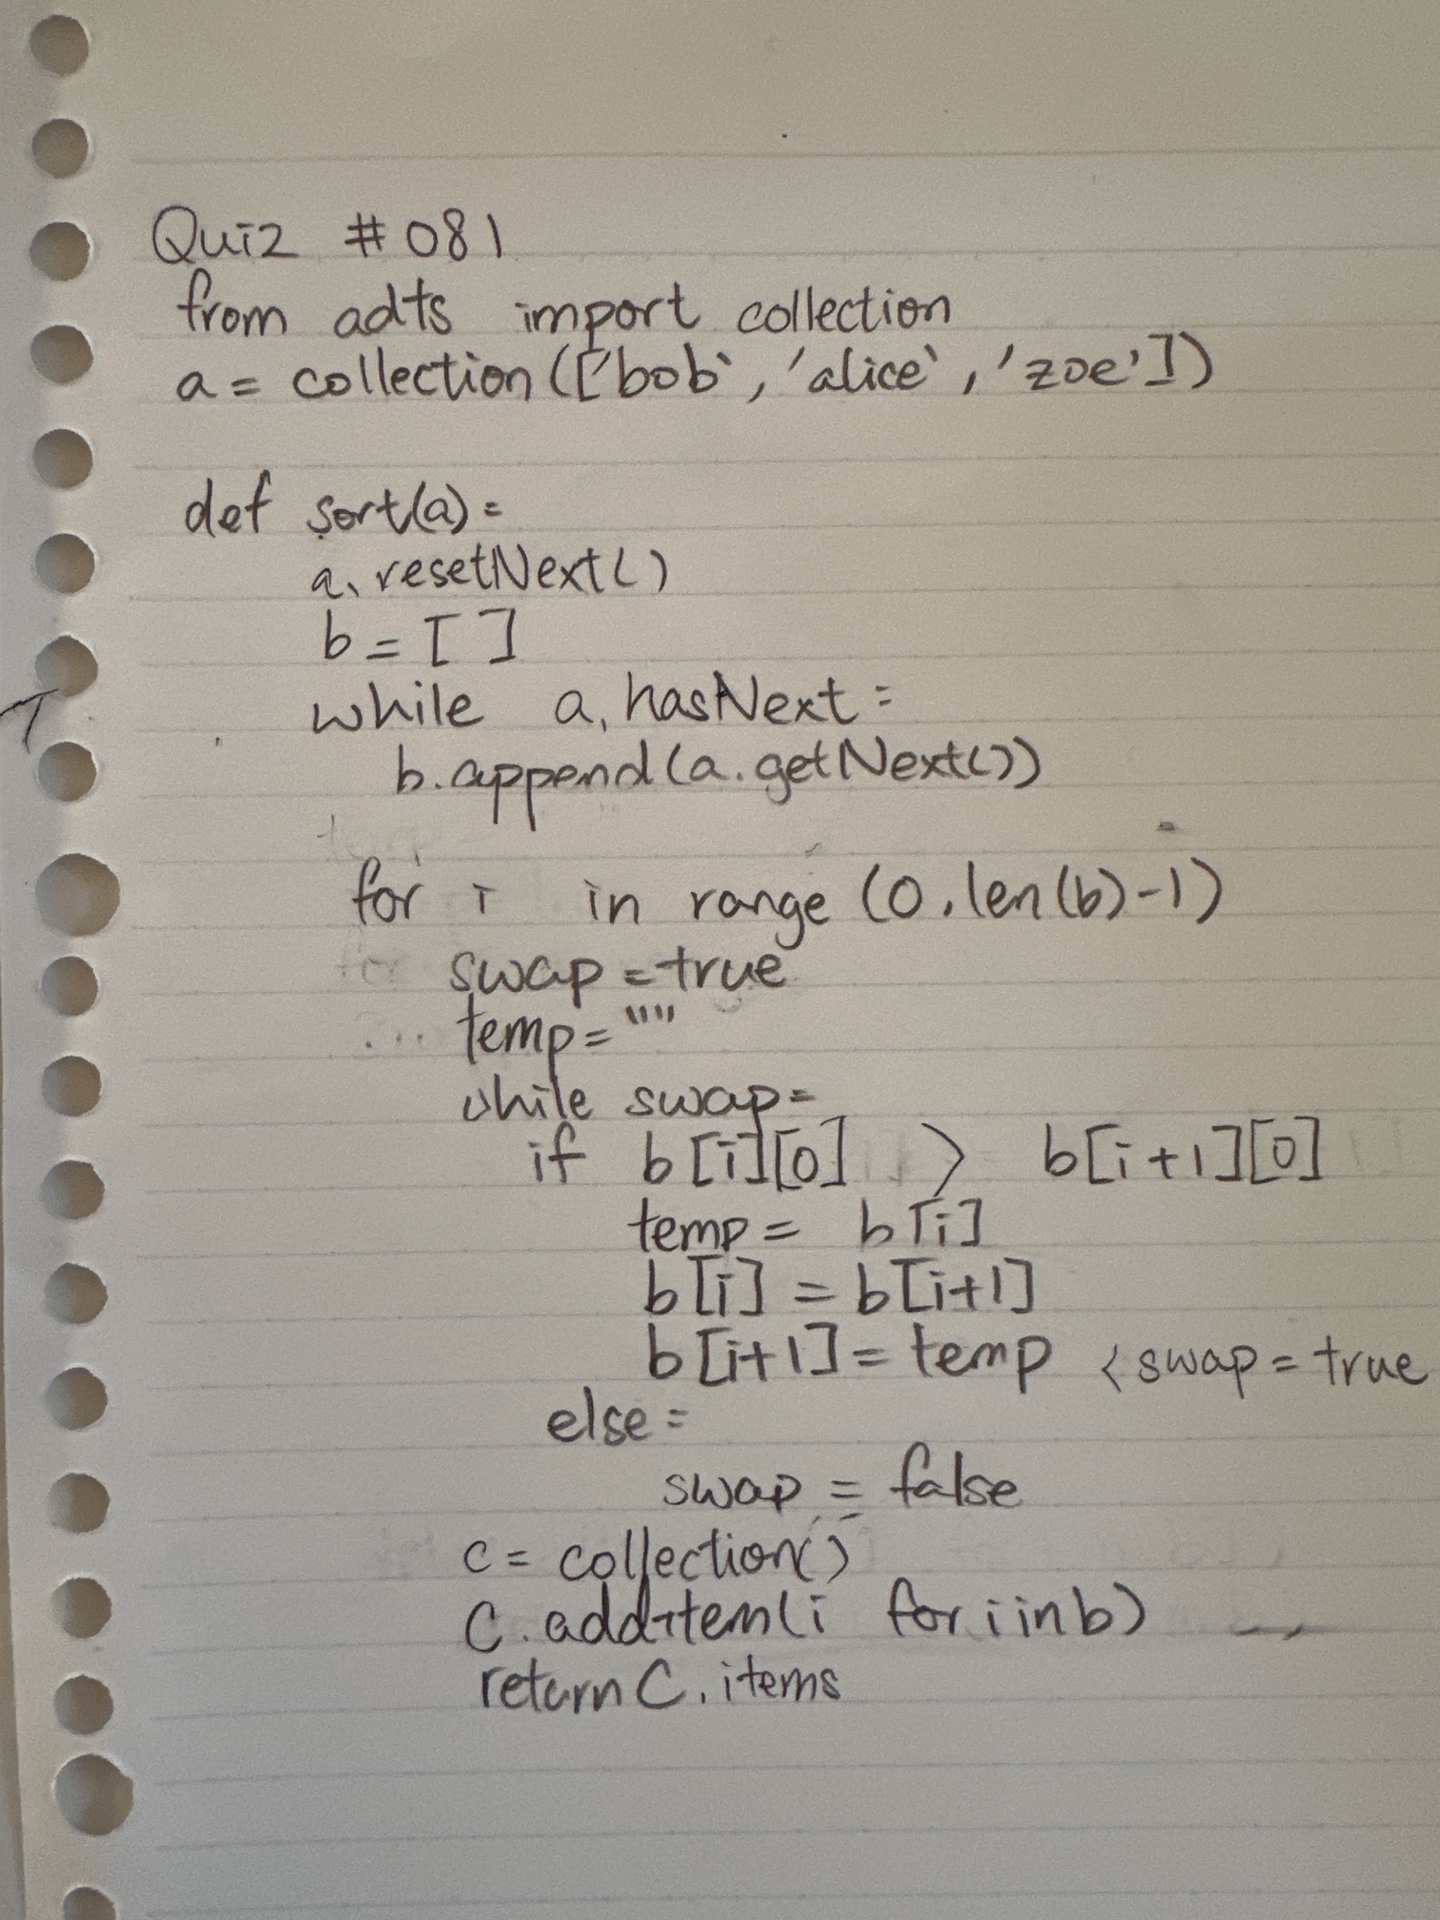 Quiz #081
from adts import collection
a = collection(['bob', 'alice', 'zoe'])
def sort(a):
a.resetNext()
b = []
while a.hasNext:
b.append(a.getNext())
for i in range (0,len(b)-1)
swap = true
temp = ""
while swap:
if b[i][0] > b[i+1][0]
temp = b[i]
b[i] = b[i+1]
b[i+1] = temp <swap = true
else:
swap = false
c = collection()
C.addItem(i for i in b)
return C.items